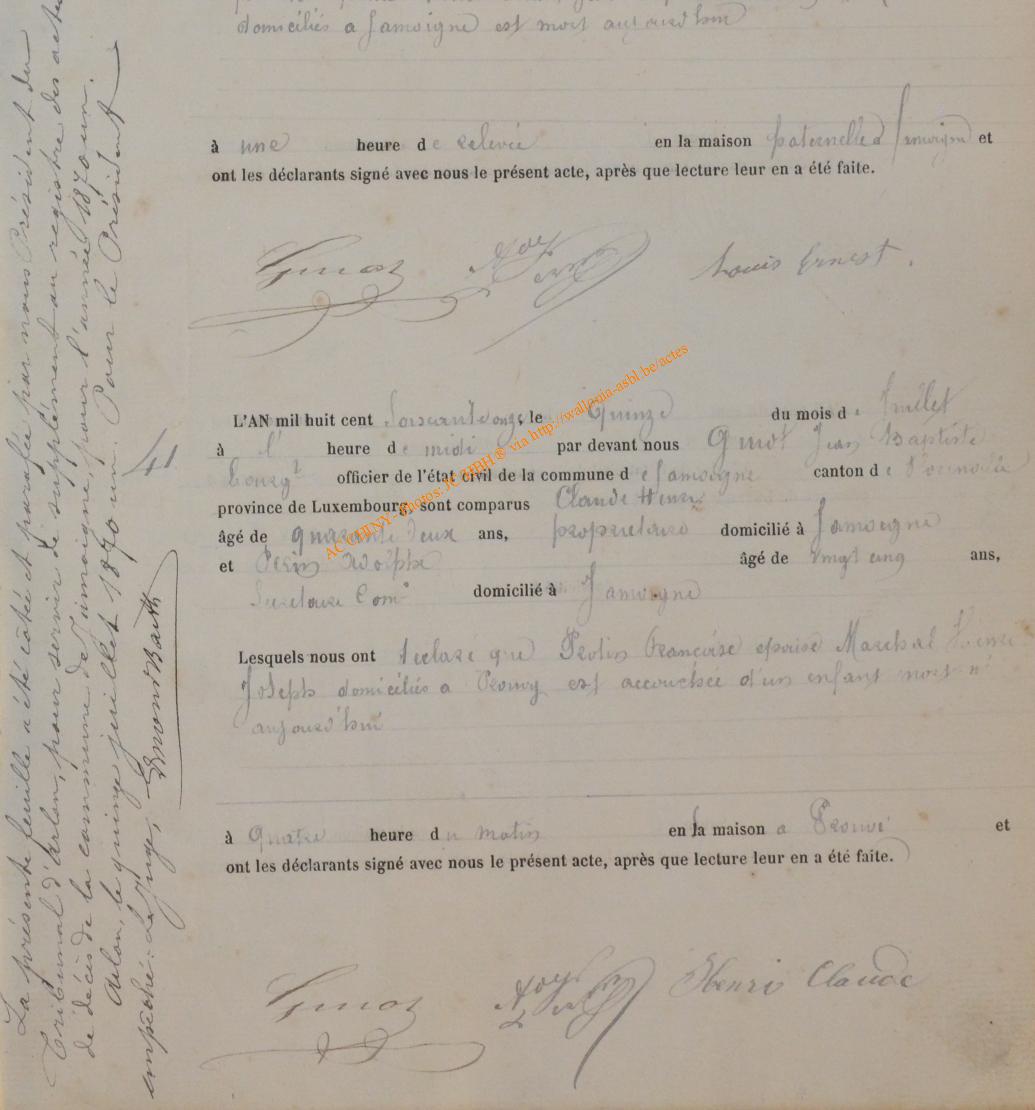 domiciliés a Jamoigne est mort aujourd'hui
à une heure de relevée en la maison paternelle a Jamoigne et
ont les déclarants signé avec nous le présent acte, après que lecture leur en a été faite.
Louis Ernest.
L'AN mil huit cent soixante onze, le Quinze du mois de Juillet
41
à l' heure de midi par devant nous Guiot Jean Baptiste
Bourgt officier de l'état civil de la commune de Jamoigne canton de
province de Luxembourg, sont comparus Claude Henri
âgé de quarante deux ans, propriétaire domicilié à Jamoigne
et Adolphe âgé de vingt cinq ans,
Secrétaire Comal domicilié à Jamoigne
Lesquels nous ont déclaré que Protin Françoise épouse Maréchal
Joseph domiciliés a Prouvy est accouchée d'un enfant mort né
aujourd'hui
à Quatre heure du matin en la maison a Prouvi et
ont les déclarants signé avec nous le présent acte, après que lecture leur en a été faite.
Henri Claude
La présente feuille a été côtée et paraféé par nous Président du
Tribunal d'Arlon, pour servir de supplément au registre des actes
de décès de la commune de Jamoigne, pour l'année 1870 un.
Arlon, le quinze juillet 1870 un. Pour le Président
empêché: Le Juge,
ACCHLNY - Photos: JCMHBH ® via http://wallonia-asbl.be/actes